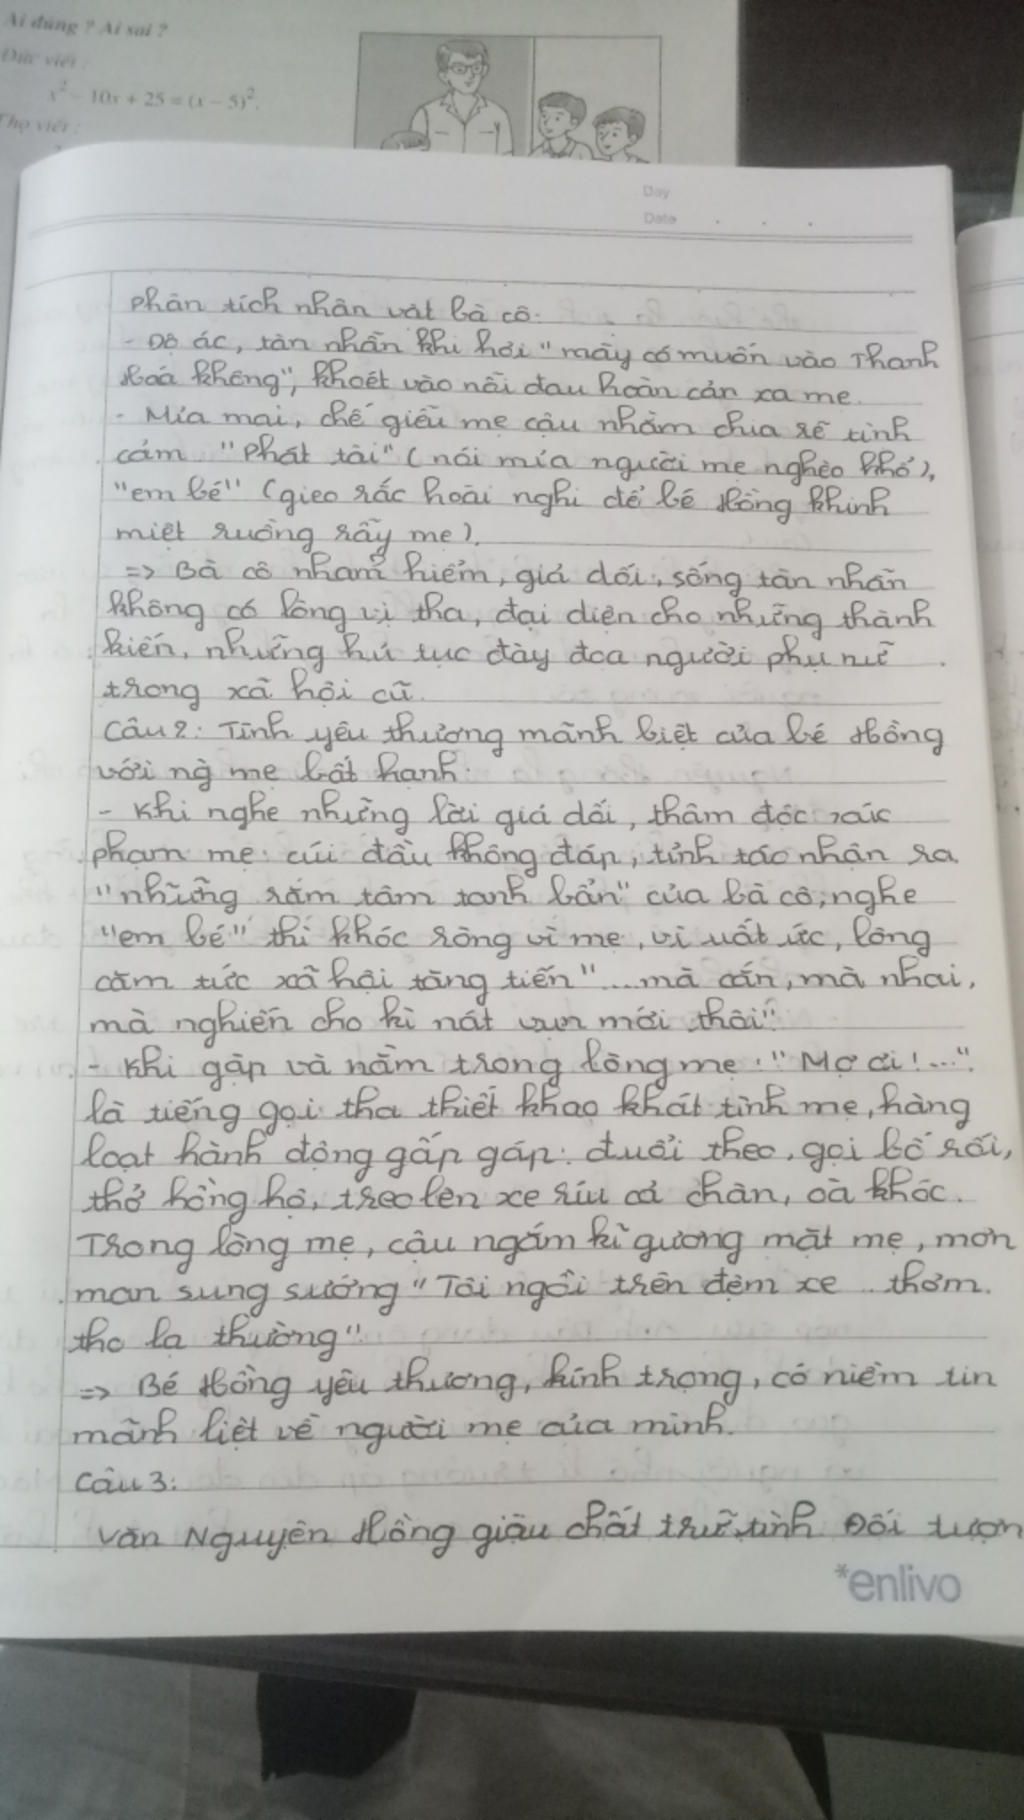 Ai đúng ? Ai sai ?
Đức viết :
x² - 10x + 25 = (x - 5)².
Thọ viết :
Day
Date
phân tích nhân vật bà cô:
- Độ ác, tàn nhẫn khi hỏi "mày có muốn vào Thanh
Hoá không", khoét vào nỗi đau hoàn cản xa mẹ.
- Mỉa mai, chế giễu mẹ cậu nhằm chia rẽ tình
cảm "phát tài" (nói mỉa người mẹ nghèo khổ),
"em bé" (gieo rắc hoài nghi để bé Hồng khinh
miệt ruồng rẫy mẹ).
=> Bà cô nham hiểm, giả dối, sống tàn nhẫn
không có lòng vị tha, đại diện cho những thành
kiến, những hủ tục đày đoạ người phụ nữ
trong xã hội cũ.
Câu 2: Tình yêu thương mãnh liệt của bé Hồng
với ng` mẹ bất hạnh:
- Khi nghe những lời giả dối, thâm độc xúc
phạm mẹ: cúi đầu không đáp, tỉnh táo nhận ra
"những rắm tâm tanh bẩn" của bà cô; nghe
"em bé" thì khóc ròng vì mẹ, vì uất ức, lòng
căm tức xã hội tăng tiến "...mà cắn, mà nhai,
mà nghiến cho kì nát vụn mới thôi".
- Khi gặp và nằm trong lòng mẹ: "Mợ ơi!...".
là tiếng gọi tha thiết khao khát tình mẹ, hàng
loạt hành động gấp gáp: đuổi theo, gọi bố rối,
thở hồng hộ, treo lên xe ríu cả chân, oà khóc.
Trong lòng mẹ, cậu ngắm kĩ gương mặt mẹ, mơn
man sung sướng "Tôi ngồi trên đệm xe ... thơm.
tho lạ thường".
=> Bé Hồng yêu thương, kính trọng, có niềm tin
mãnh liệt về người mẹ của mình.
Câu 3:
Văn Nguyên Hồng giàu chất trữ tình Đối tượn
*enlivo